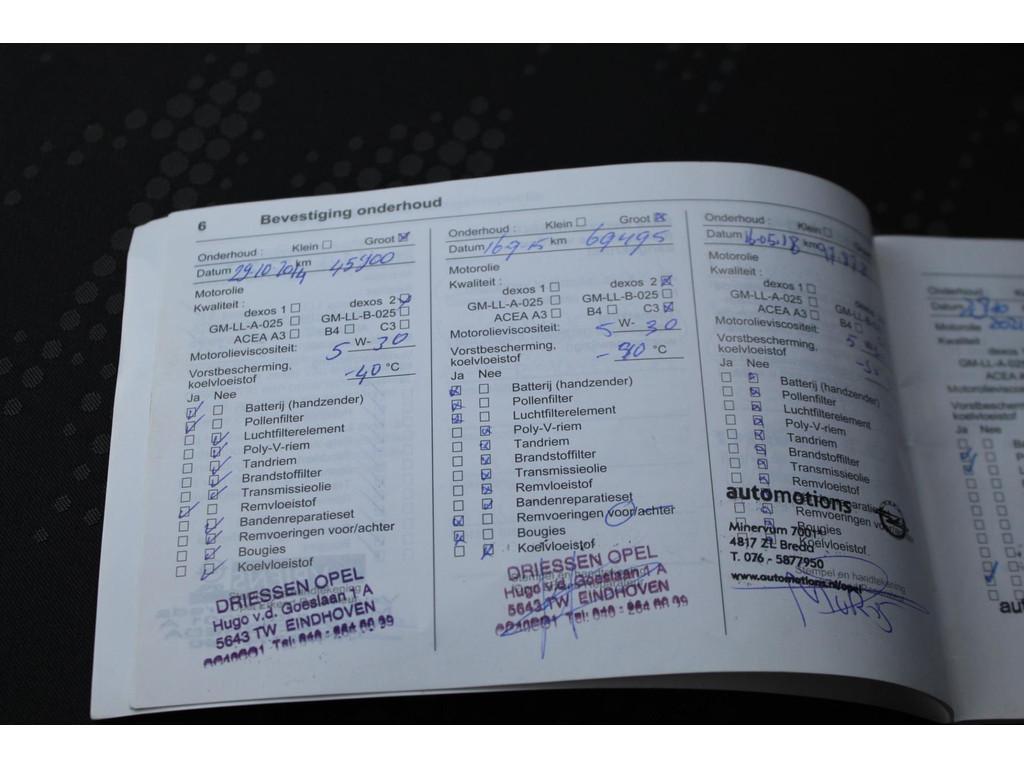 6 Bevestiging onderhoud
Onderhoud : Klein Groot
Datum 29 10 2014 km 45900
Motorolie
Kwaliteit : dexos 1 dexos 2
GM-LL-A-025 GM-LL-B-025
ACEA A3 B4 C3
Motorolieviscositeit: 5 W- 30
Vorstbescherming,
koelvloeistof -40 °C
Ja Nee
Batterij (handzender)
Pollenfilter
Luchtfilterelement
Poly-V-riem
Tandriem
Brandstoffilter
Transmissieolie
Remvloeistof
Bandenreparatieset
Remvoeringen voor/achter
Bougies
Koelvloeistof
DRIESSEN OPEL
Hugo v.d. Goeslaan 1 A
5643 TW EINDHOVEN
Onderhoud : Klein Groot
Datum 16 9-15 km 69495
Motorolie
Kwaliteit : dexos 1 dexos 2
GM-LL-A-025 GM-LL-B-025
ACEA A3 B4 C3
Motorolieviscositeit: 5 W- 30
Vorstbescherming,
koelvloeistof °C
Ja Nee
Batterij (handzender)
Pollenfilter
Luchtfilterelement
Poly-V-riem
Tandriem
Brandstoffilter
Transmissieolie
Remvloeistof
Bandenreparatieset
Remvoeringen voor/achter
Bougies
Koelvloeistof
Stempel en handtekening
DRIESSEN OPEL
Hugo v.d. Goeslaan 1 A
5643 TW EINDHOVEN
Onderhoud : Klein
Datum 16.05.18 km
Motorolie
Kwaliteit : dexos 1
GM-LL-A-025
ACEA A3 B4
Motorolieviscositeit: 5
Vorstbescherming,
koelvloeistof
Ja Nee
Batterij (handzender)
Pollenfilter
Luchtfilterelement
Poly-V-riem
Tandriem
Brandstoffilter
Transmissieolie
Remvloeistof
automotions
Remvoeringen
Bougies
Koelvloeistof
Minervum 7001
4817 ZL Breda
T. 076 - 5877950
Stempel en handtekening
www.automotions.nl/opel
Onderhoud
Datum
Motorolie
Kwaliteit
dexos
GM-LL-A-025
ACEA A
Motorolieviscositeit
Vorstbescherming
koelvloeistof
Ja Nee